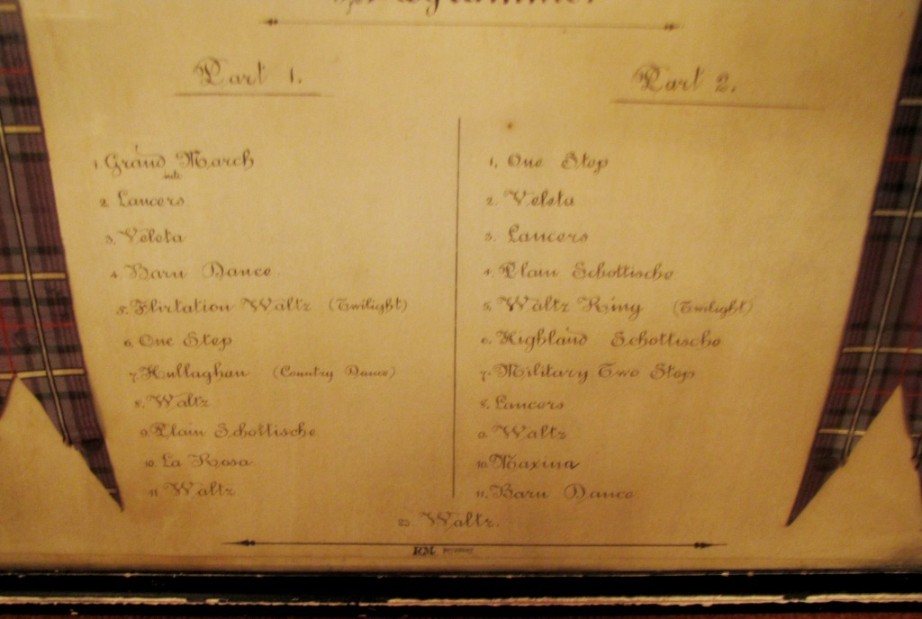 Programme.
Part 1.
1. Grand March
2. Lancers
3. Veleta
4. Barn Dance
5. Flirtation Waltz (Twilight)
6. One Step
7. Hullaghan (Country Dance)
8. Waltz
9. Plain Schottische
10. La Rosa
11. Waltz
Part 2.
1. One Step
2. Veleta
3. Lancers
4. Plain Schottische
5. Waltz Ring (Twilight)
6. Highland Schottische
7. Military Two Step
8. Lancers
9. Waltz
10. Maxina
11. Barn Dance
Waltz.